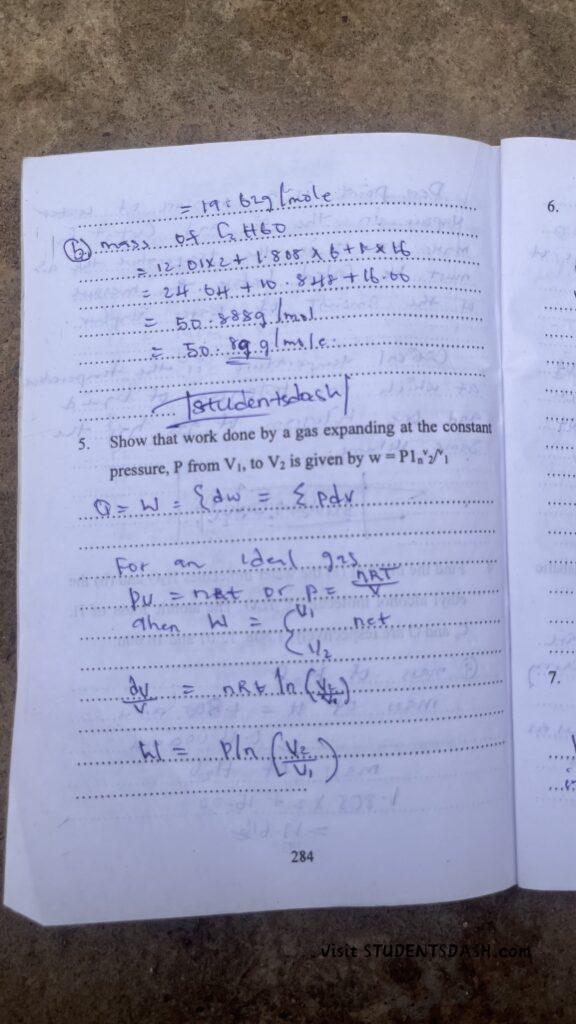 = 19.62g/mole
(b) mass of C2 H6O
= 12.01x2 + 1.808 x 6 + 1 x 16
= 24.04 + 10.848 + 16.00
= 50.888g/mol
= 50.89 g/mole.
studentsdash
5. Show that work done by a gas expanding at the constant
pressure, P from V₁, to V₂ is given by w = P1ₙᵛ₂/ᵛ₁
Q = W = { dw = { pdv
For an ideal gas
PV = nRt or P = nRT/V
then W = { V1 net
V2
dv/V = nRt ln (V2/V1)
W = Pln (V2/V1)
284
6.
7.
Visit STUDENTSDASH.com